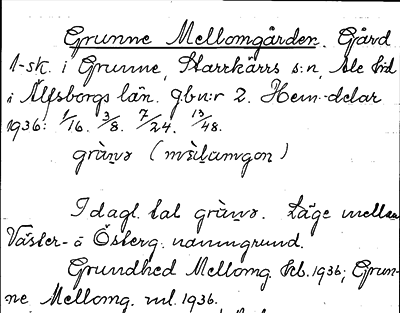 Grunne Mellomgården. Gård
1-sk. i Grunne, Starrkärrs s:n, Ale hd
i Älfsborgs län. gbn:r 2. Hem.-delar
1936: 1/16. 3/8. 7/24. 13/48.
(
I dagl. tal Läge mellan
Väster- o Österg. namngrund.
Grundhed Mellomg. kb. 1936; Grun-
ne Mellomg. ml. 1936.